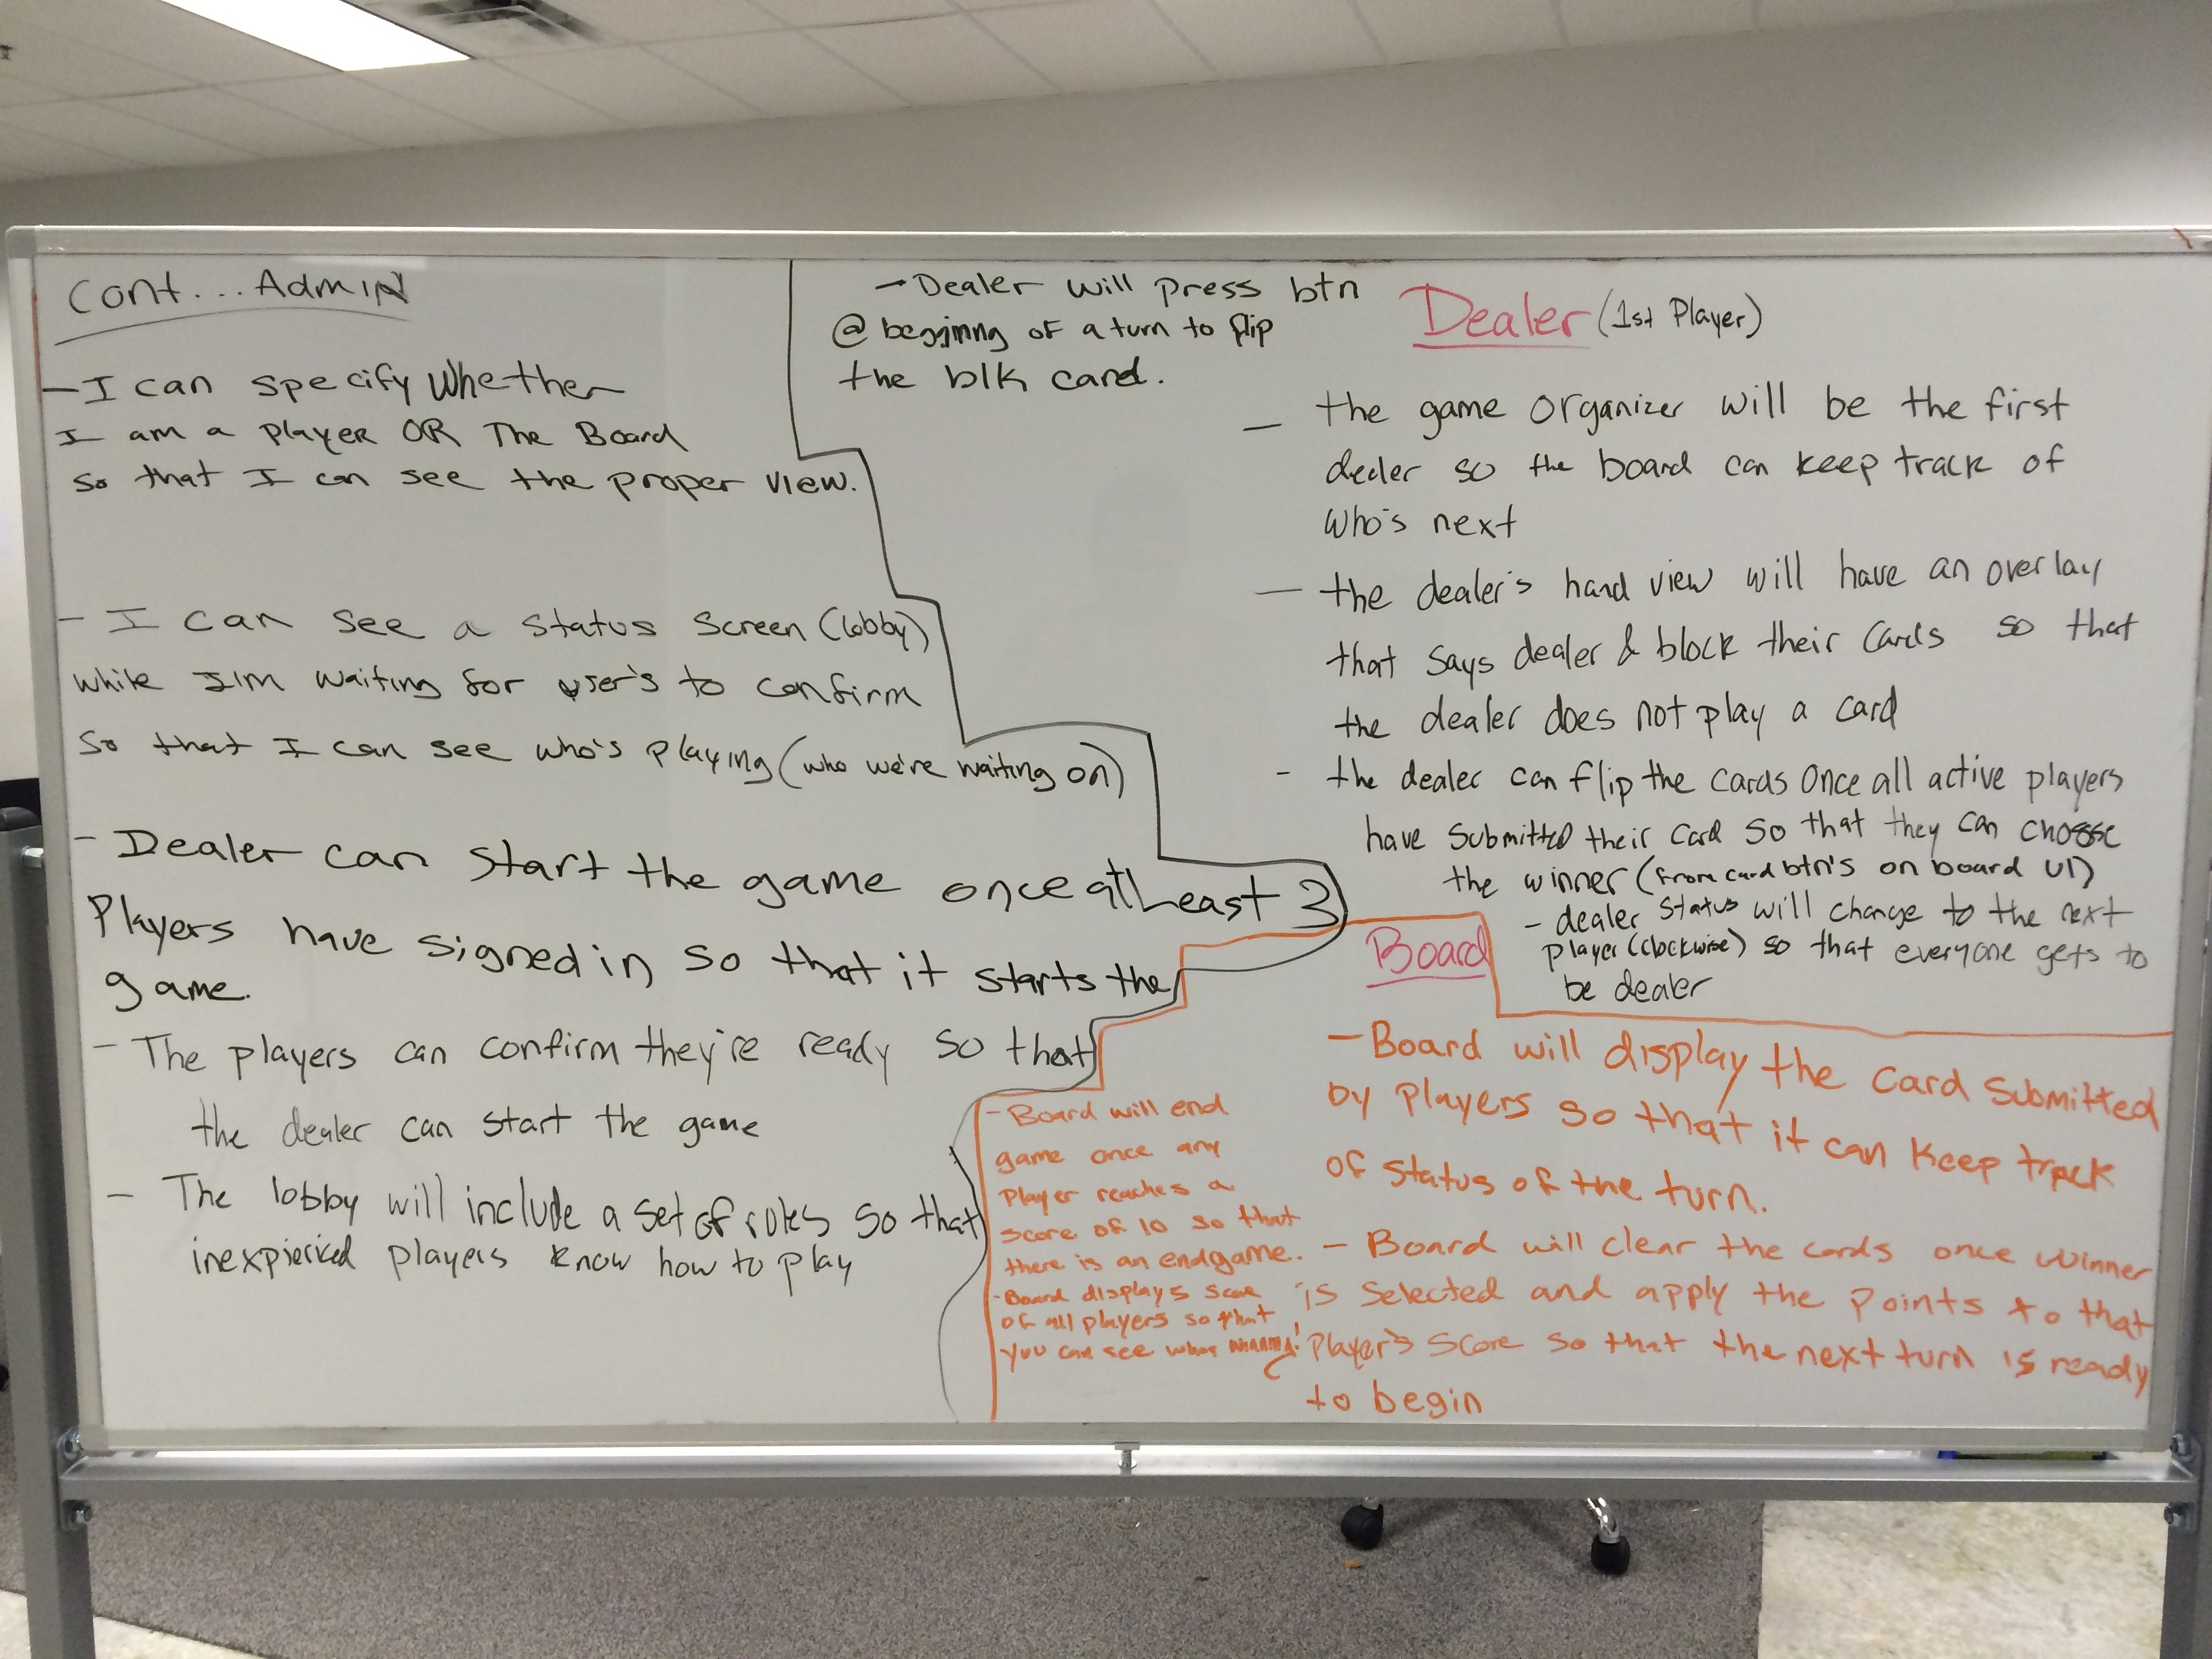 Cont... Admin
- I can specify Whether
I am a player OR The Board
so that I can see the proper view.
- I can see a status screen (lobby)
while I'm waiting for user's to confirm
So that I can see who's playing (who we're waiting on)
- Dealer can start the game once at Least 3
Players have signed in so that it starts the
game.
- The players can confirm they're ready so that
the dealer can start the game
- The lobby will include a set of rules so that
inexpierced players know how to play
- Dealer will press btn
@ beginnng of a turn to flip
the blk card.
Dealer (1st Player)
- the game organizer will be the first
dealer so the board can keep track of
who's next
- the dealer's hand view will have an overlay
that says dealer & block their cards so that
the dealer does not play a card
- the dealer can flip the cards once all active players
have submitted their card so that they can choose
the winner (from card btn's on board UI)
- dealer status will change to the next
player (clockwise) so that everyone gets to
be dealer
Board
- Board will display the card submitted
by players so that it can keep track
of status of the turn.
- Board will clear the cards once winner
is selected and apply the points to that
Player's score so that the next turn is ready
to begin
- Board will end
game once any
player reaches a
score of 10 so that
there is an endgame.
- Board displays score
of all players so that
you can see whos winning!